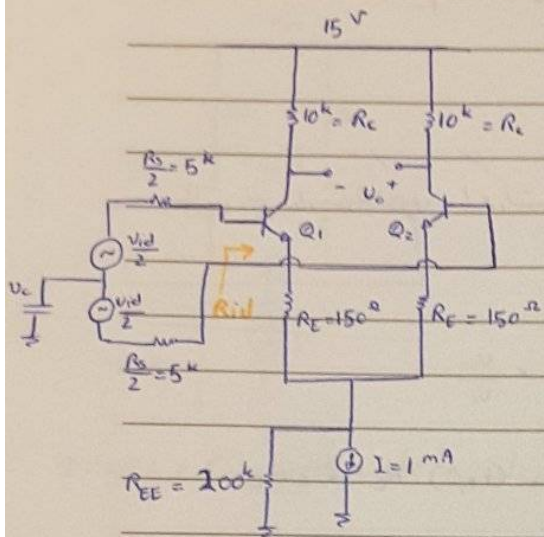 15 V
10k = Rc
10k = Rc
Rs/2 = 5k
- Vo +
Q1
Q2
Vid/2
Vc
Vid/2
Rid
RE = 150Ω
RE = 150Ω
Rs/2 = 5k
I = 1 mA
REE = 200k